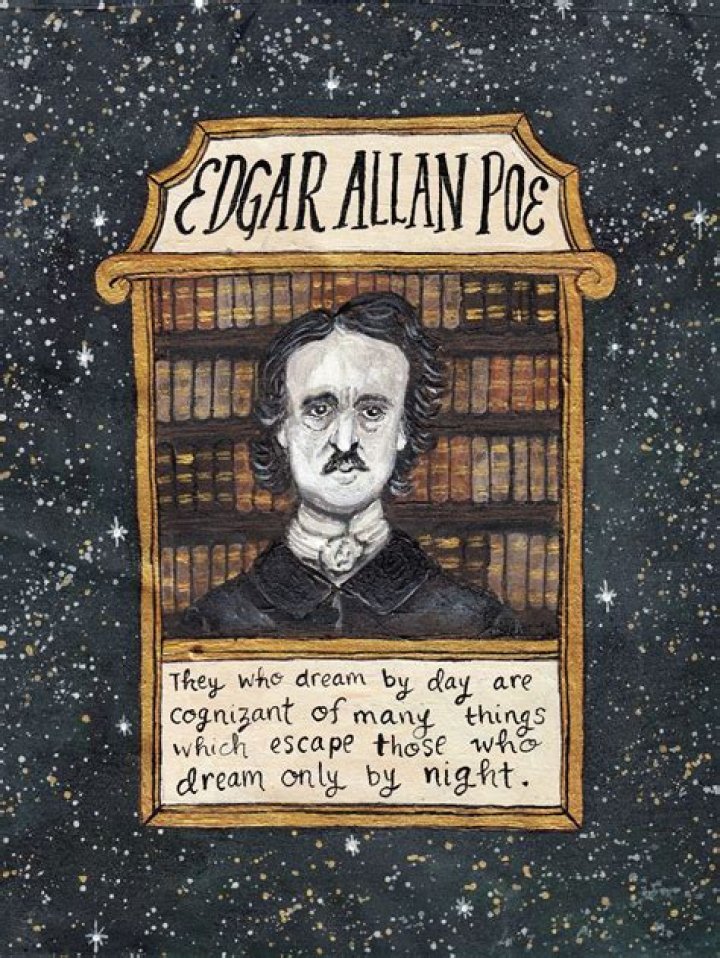 EDGAR ALLAN POE
They who dream by day are
cognizant of many things
which escape those who
dream only by night.